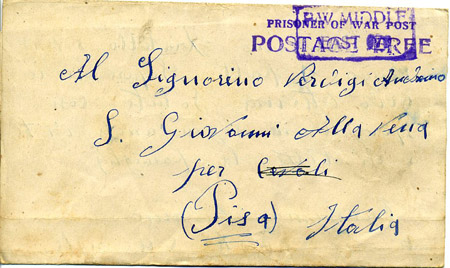 P.W. MIDDLE
PRISONER OF WAR POST
EAST
POSTAGE FREE
Al Signorino Verdigi Antonino
S. Giovanni Alla Vena
per Cevoli
(Pisa) Italia